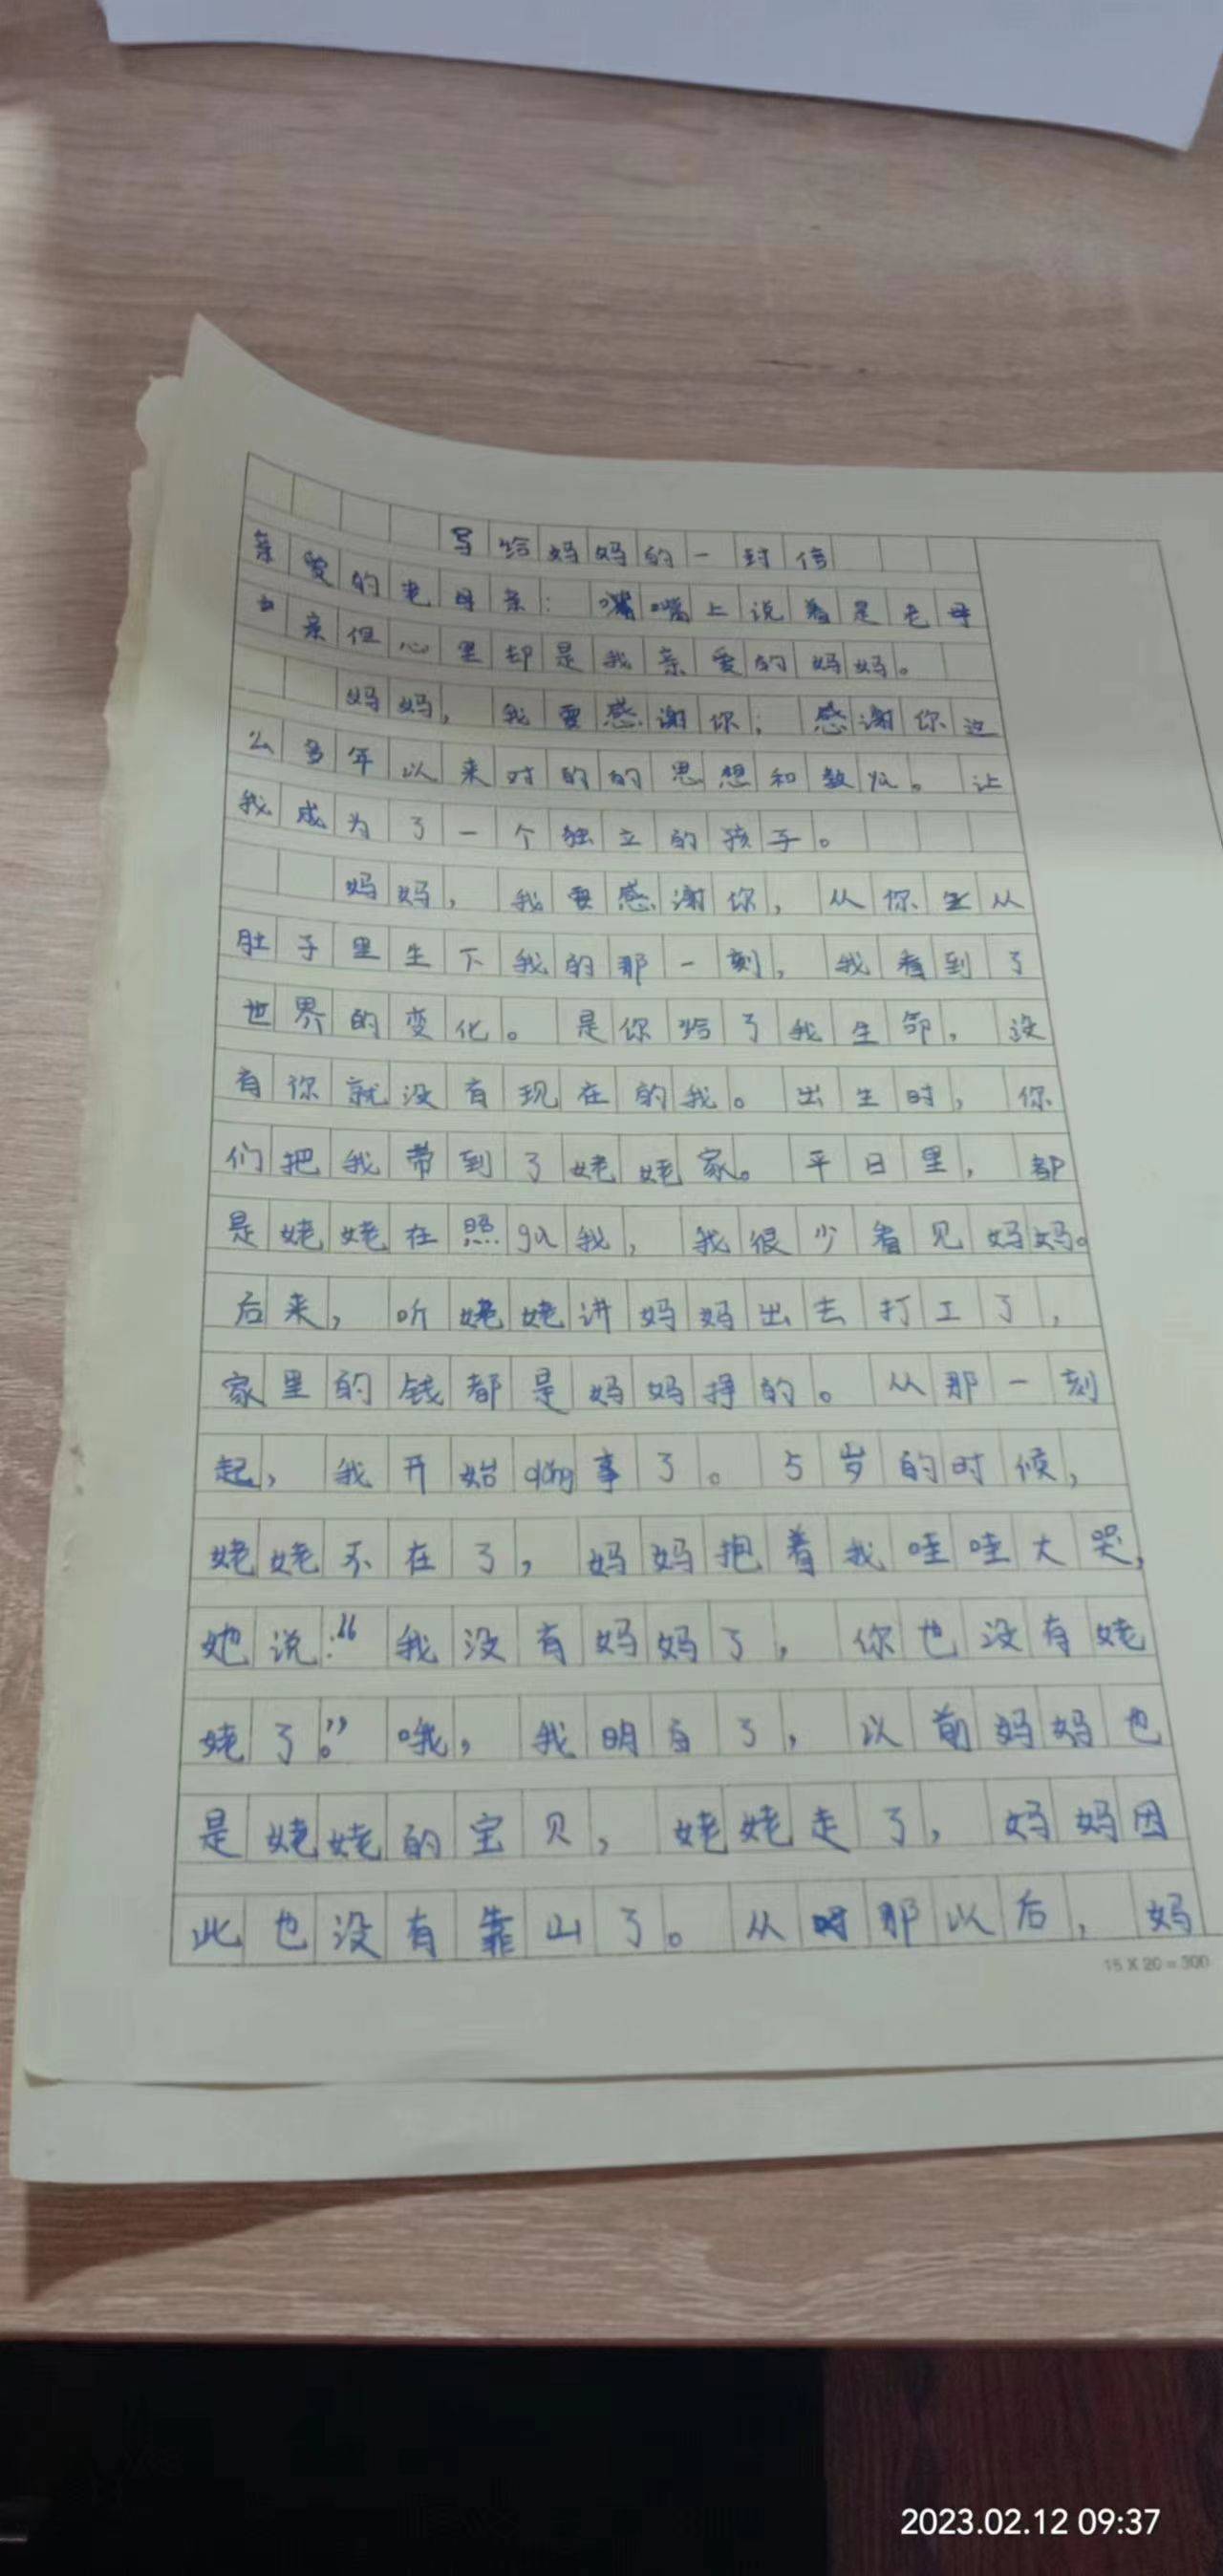 写给妈妈的一封信
亲爱的老母亲：嘴嘴上说着是老母
亲但心里却是我亲爱的妈妈。
妈妈，我要感谢你，感谢你这
么多年以来对的的思想和教如。让
我成为了一个独立的孩子。
妈妈，我要感谢你，从你生从
肚子里生下我的那一刻，我看到了
世界的变化。是你给了我生命，没
有你就没有现在的我。出生时，你
们把我带到了姥姥家。平日里，都
是姥姥在照gu我，我很少看见妈妈。
后来，听姥姥讲妈妈出去打工了，
家里的钱都是妈妈挣的。从那一刻
起，我开始dǒng事了。5岁的时候，
姥姥不在了，妈妈抱着我哇哇大哭，
她说：“我没有妈妈了，你也没有姥
姥了。”哦，我明白了，以前妈妈也
是姥姥的宝贝，姥姥走了，妈妈因
此也没有靠山了。从时那以后，妈
15 X 20 = 300
2023.02.12 09:37